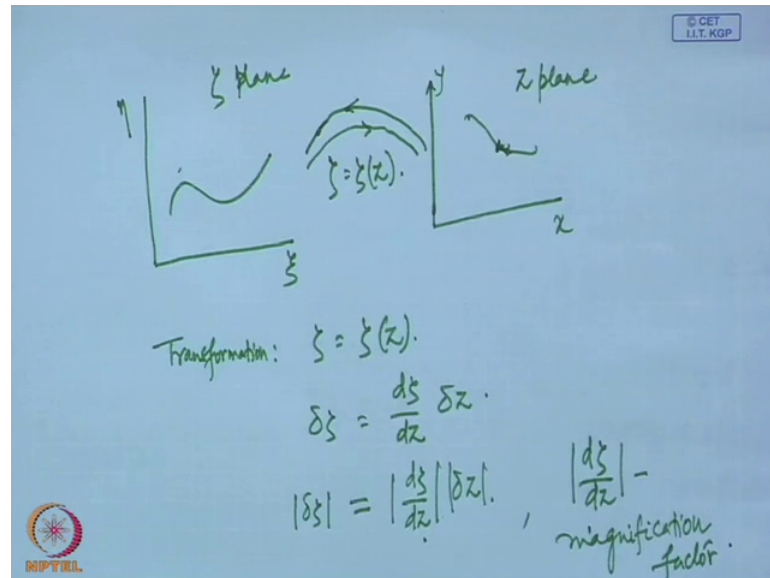 © CET
I.I.T. KGP
ζ plane
z plane
η
y
ζ = ζ(z).
ξ
x
Transformation: ζ = ζ(z).
δζ = dζ/dz δz.
|δζ| = |dζ/dz| |δz|. , |dζ/dz| –
magnification
factor.
NPTEL